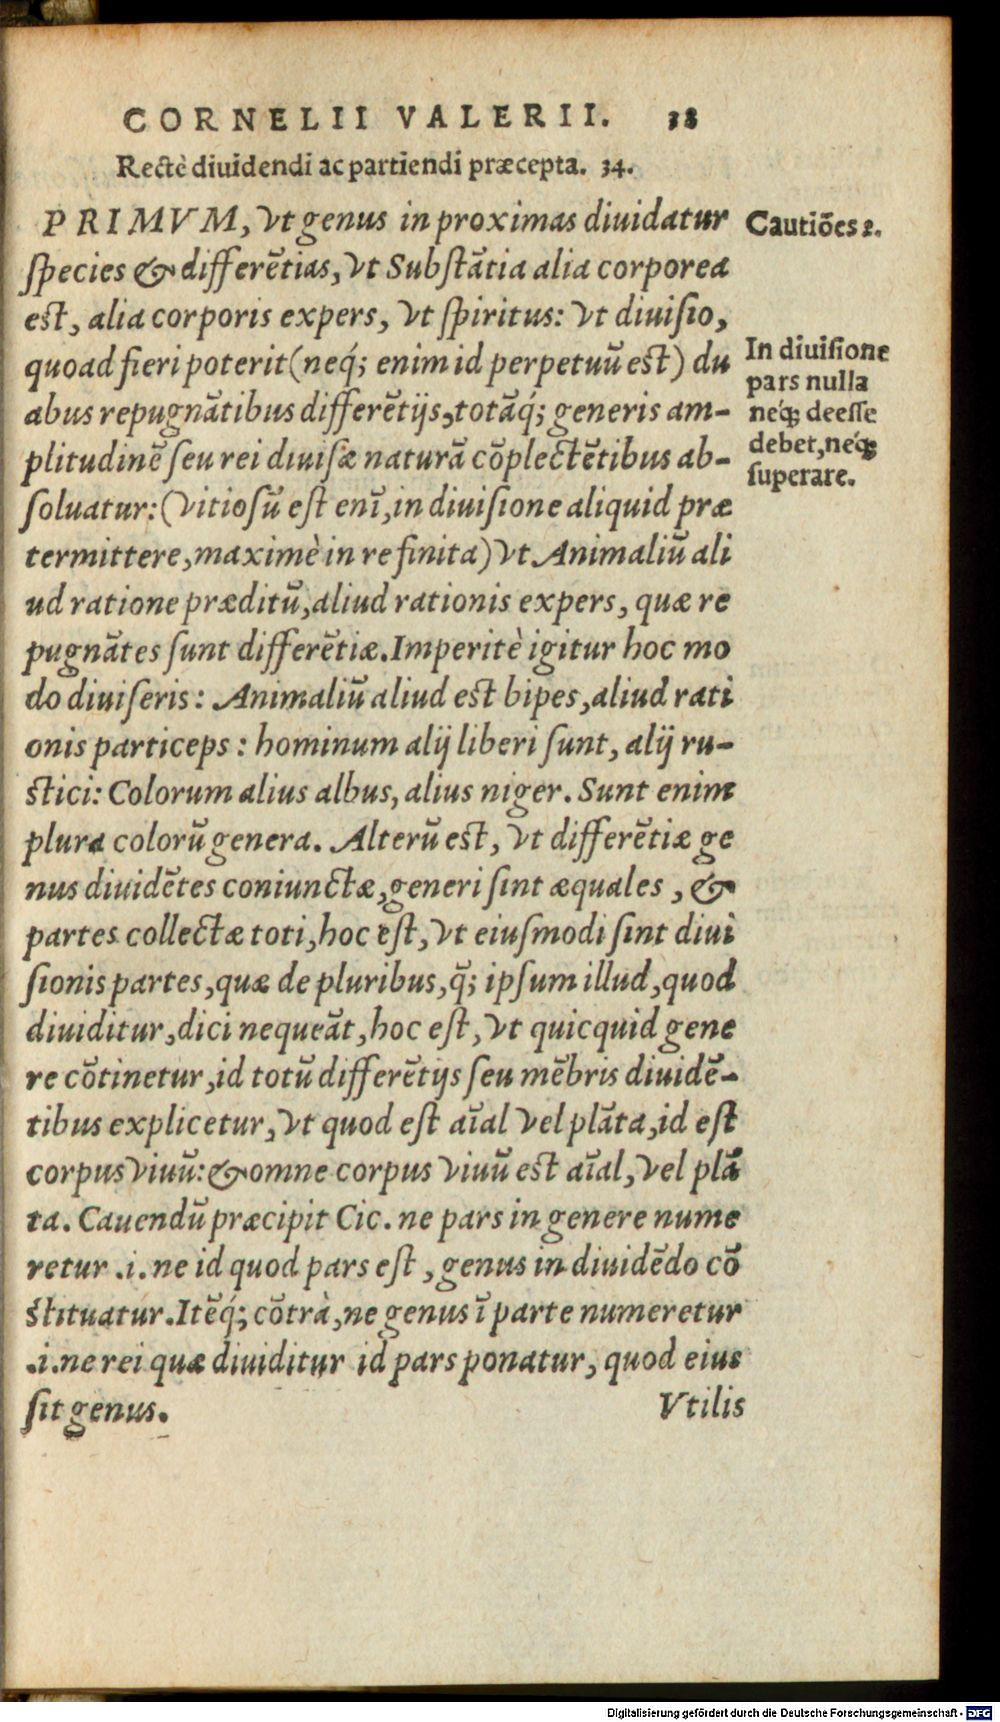 CORNELII VALERII. 38
Rectè diuidendi ac partiendi præcepta. 34.
PRIMVM, vt genus in proximas diuidatur
Cautiões 2.
ſpecies & differẽtias, vt Subſtãtia alia corporea
eſt, alia corporis expers, vt ſpiritus: vt diuiſio,
quoad fieri poterit (neq́; enim id perpetuũ eſt) du
abus repugnãtibus differẽtijs, totãq́; generis am-
plitudinẽ ſeu rei diuiſæ naturã cõplectẽtibus ab-
ſoluatur: (vitioſũ eſt enĩ, in diuiſione aliquid præ
termittere, maximè in re finita) vt Animaliũ ali
In diuiſione
pars nulla
neq́; deeſſe
debet, neq́;
ſuperare.
ud ratione præditũ, aliud rationis expers, quæ re
pugnãtes ſunt differẽtiæ. Imperitè igitur hoc mo
do diuiſeris: Animaliũ aliud eſt bipes, aliud rati
onis particeps: hominum alij liberi ſunt, alij ru-
ſtici: Colorum alius albus, alius niger. Sunt enim
plura colorũ genera. Alterũ eſt, vt differẽtiæ ge
nus diuidẽtes coniunctæ, generi ſint æquales, &
partes collectæ toti, hoc eſt, vt eiuſmodi ſint diui
ſionis partes, quæ de pluribus, q̃; ipſum illud, quod
diuiditur, dici nequeãt, hoc eſt, vt quicquid gene
re cõtinetur, id totũ differẽtijs ſeu mẽbris diuidẽ-
tibus explicetur, vt quod eſt aĩal vel plãta, id eſt
corpus viuũ: & omne corpus viuũ eſt aĩal, vel plã
ta. Cauendũ præcipit Cic. ne pars in genere nume
retur .i. ne id quod pars eſt, genus in diuidẽdo cõ
ſtituatur. Itẽq́; cõtrà, ne genus ĩ parte numeretur
.i. ne rei quæ diuiditur id pars ponatur, quod eius
ſit genus.
Vtilis
Digitalisierung gefördert durch die Deutsche Forschungsgemeinschaft - DFG